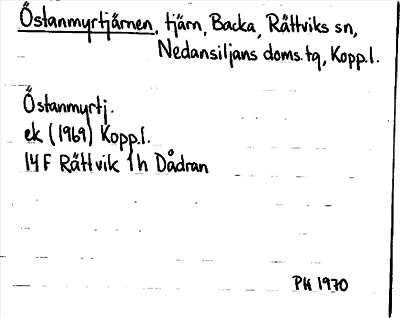 Östanmyrtjärnen, tjärn, Backa, Rättviks sn,
Nedansiljans doms.tg, Kopp.l.
Östanmyrtj.
ek (1969) Kopp.l.
14F Rättvik 1h Dådran
PH 1970